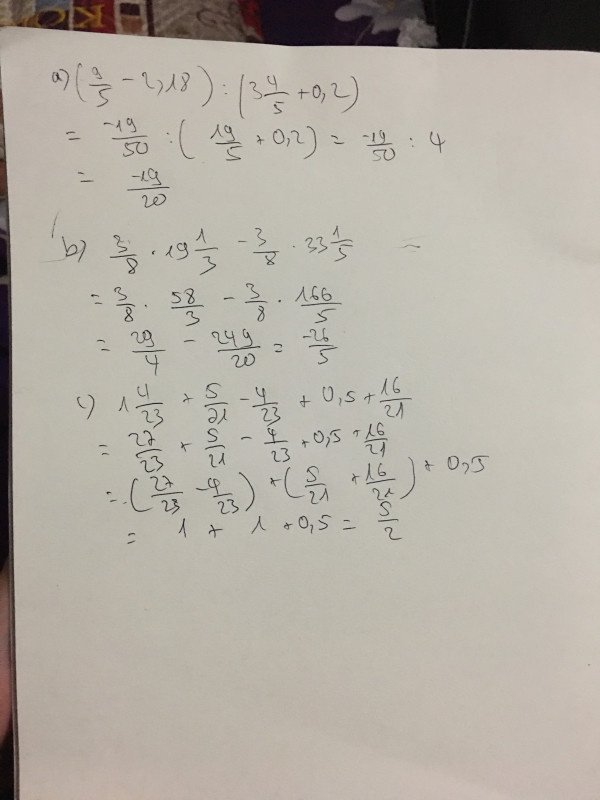 a) (9/5 - 2,18) : (3 4/5 + 0,2)
= -19/50 : (19/5 + 0,2) = -19/50 : 4
= -19/20
b) 3/8 . 19 1/3 - 3/8 . 33 1/5 =
= 3/8 . 58/3 - 3/8 . 166/5
= 29/4 - 249/20 = -26/5
c) 1 4/23 + 5/21 - 4/23 + 0,5 + 16/21
= 27/23 + 5/21 - 4/23 + 0,5 + 16/21
= (27/23 - 4/23) + (5/21 + 16/21) + 0,5
= 1 + 1 + 0,5 = 5/2